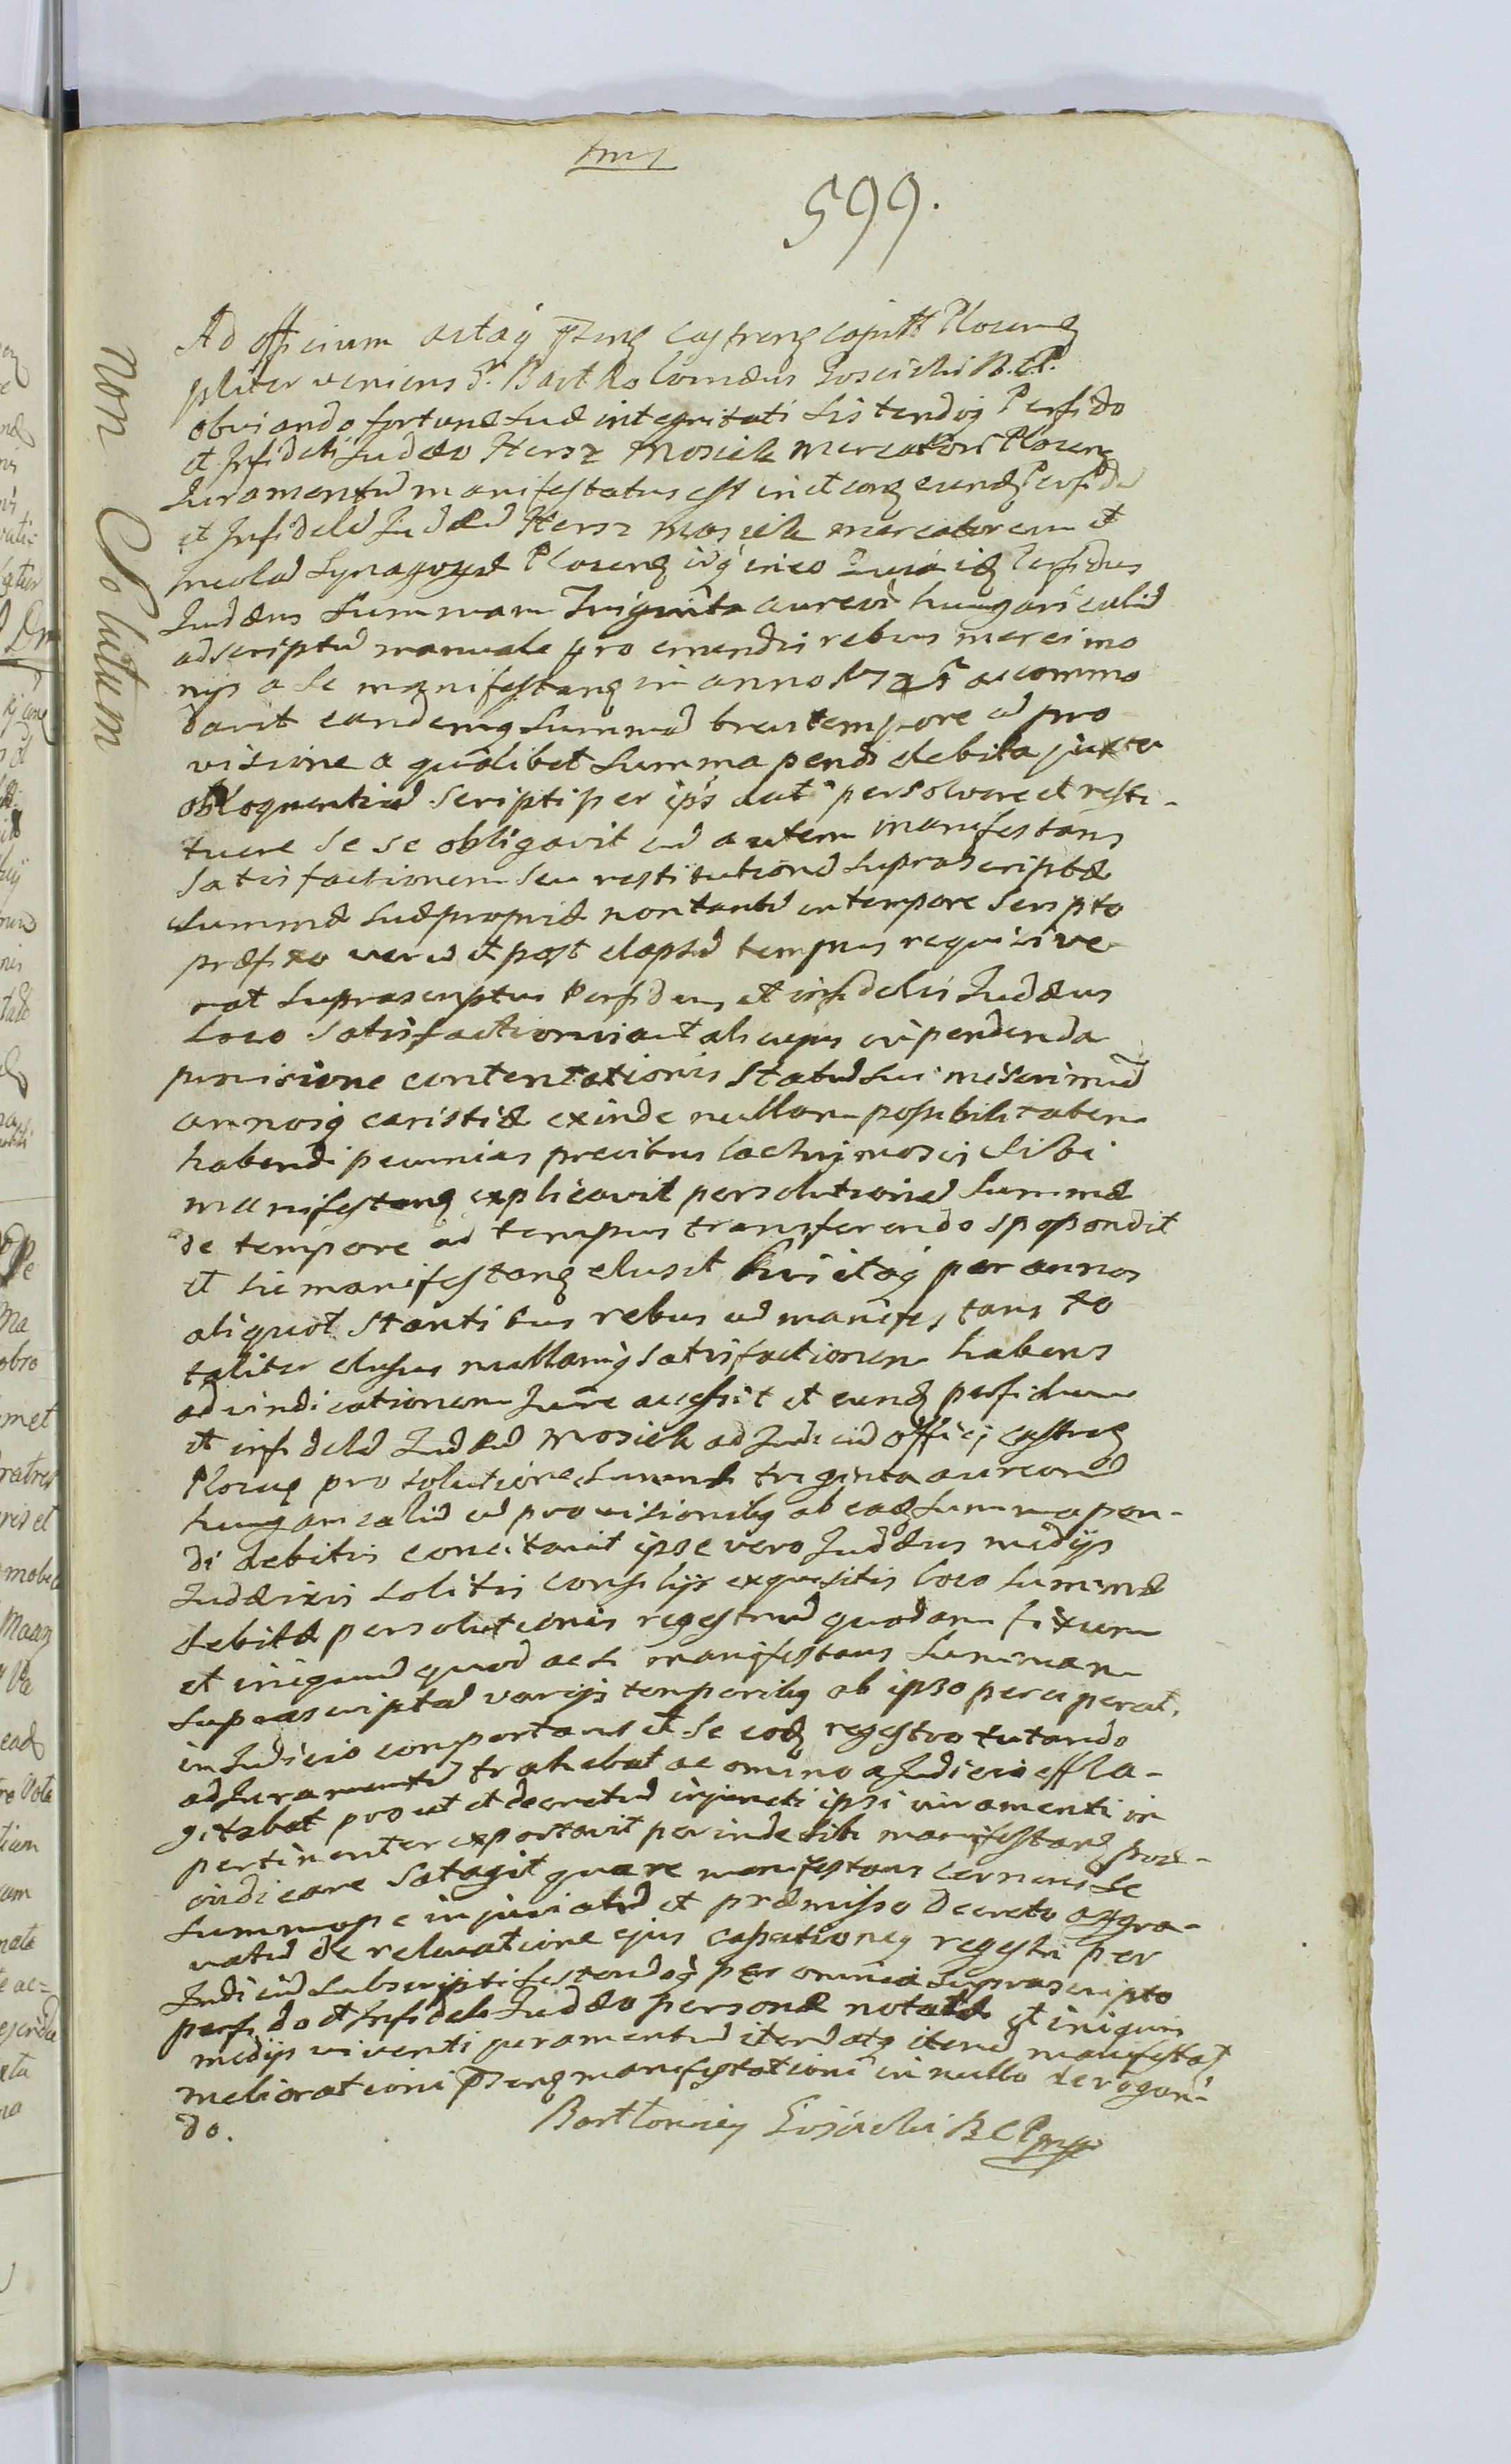 599.
Non Solutum
Ad officium actaq̃ p̃senę Castrenę Capitt Plocenę
pliter veniens P. Bartholomæus Gosicki B.C.P.
obviando fortunæ suæ integritati sistendoq̃ Perfido
et Infideli Judæo Hersz Mosiek Mercatori Plocenę
Juramentũ manifestatus est in et conę eundę Perfidũ
et Infidelẽ Judæũ Hersz Mosiek mercatorem et
Incolã Synagogæ Plocenę idq̃ in eo quia idę Perfidus
Judæus Summam Triginta aureorũ hungaricaliũ
ad scriptũ manuale pro emendis rebus mercimo
nijs a se manifestanę in anno accommo
davit eandemq̃ Summã brevi tempore cũ pro
visione a qualibet Summa pendi debita juxta
obloquentiã scripti per ips dati persolvere et resti-
tuere se se obligavit cũ autem manifestans
Satisfactionem seu restitutionẽ suprascriptæ
Summæ suæ propriæ non tantũ in tempore scripto
præfixo verũ et post elapsũ tempus requisive
rat suprascriptus Perfidus et infidelis Judæus
Loco Satisfactionis aut alicujus in pendenda
provisione contentationis Statũ sui miserrimũ
annosq̃ caristiæ exinde nullam possibilitatem
habendi pecunias precibus lachrymosis sibi
manifestanę explicavit persolutionẽ Summæ
de tempore ad tempus transferendo spopondit
et sic manifestanę elusit itaq̃ per annos
aliquot stantibus rebus cũ manifestans to
taliter elusus nullamq̃ satisfactionem habens
ad vindicationem Jure accessit et eundę perfidum
et infidelẽ Judæũ Mosiek ad Judiciũ officij castrenę
Plocenę pro solutione Summæ triginta aureorũ
hungaricaliũ cũ provisionibꝫ ab eadę Summa pen-
di debitis concitavit ipse vero Judæus medijs
Judæicis solitis consilijs exquisitis loco Summæ
debitæ persolutionis regestrũ quodam fixum
et iniquũ quod acsi manifestans Summam
suprascriptã varijs temporibꝫ ab ipso perceperat,
in Judicio comportans et se eodę regestro tutando
ad Juramentũ trahebat ac omnino a Judicio effla-
gitabat prout et decretũ injuncti ipsi juramenti in
pertinenter exportavit perinde sibi manifestanę præ-
judicare satagit quare manifestans cernens se
summope injuriatũ et præmisso Decreto aggra-
vatũ de relevatione ejus cassationeq̃ regestri per
Judiciũ subscripti sistendoq̃ per omnia suprascripto
perfido et Infideli Judæo personæ notatæ et iniquis
medijs viventi juramentũ iterũ atq̃ iterũ manifestaṭ
meliorationi p̃senę manifestationi in nullo derogan-
do.
Bartlomiey Gosicki B C P mpp